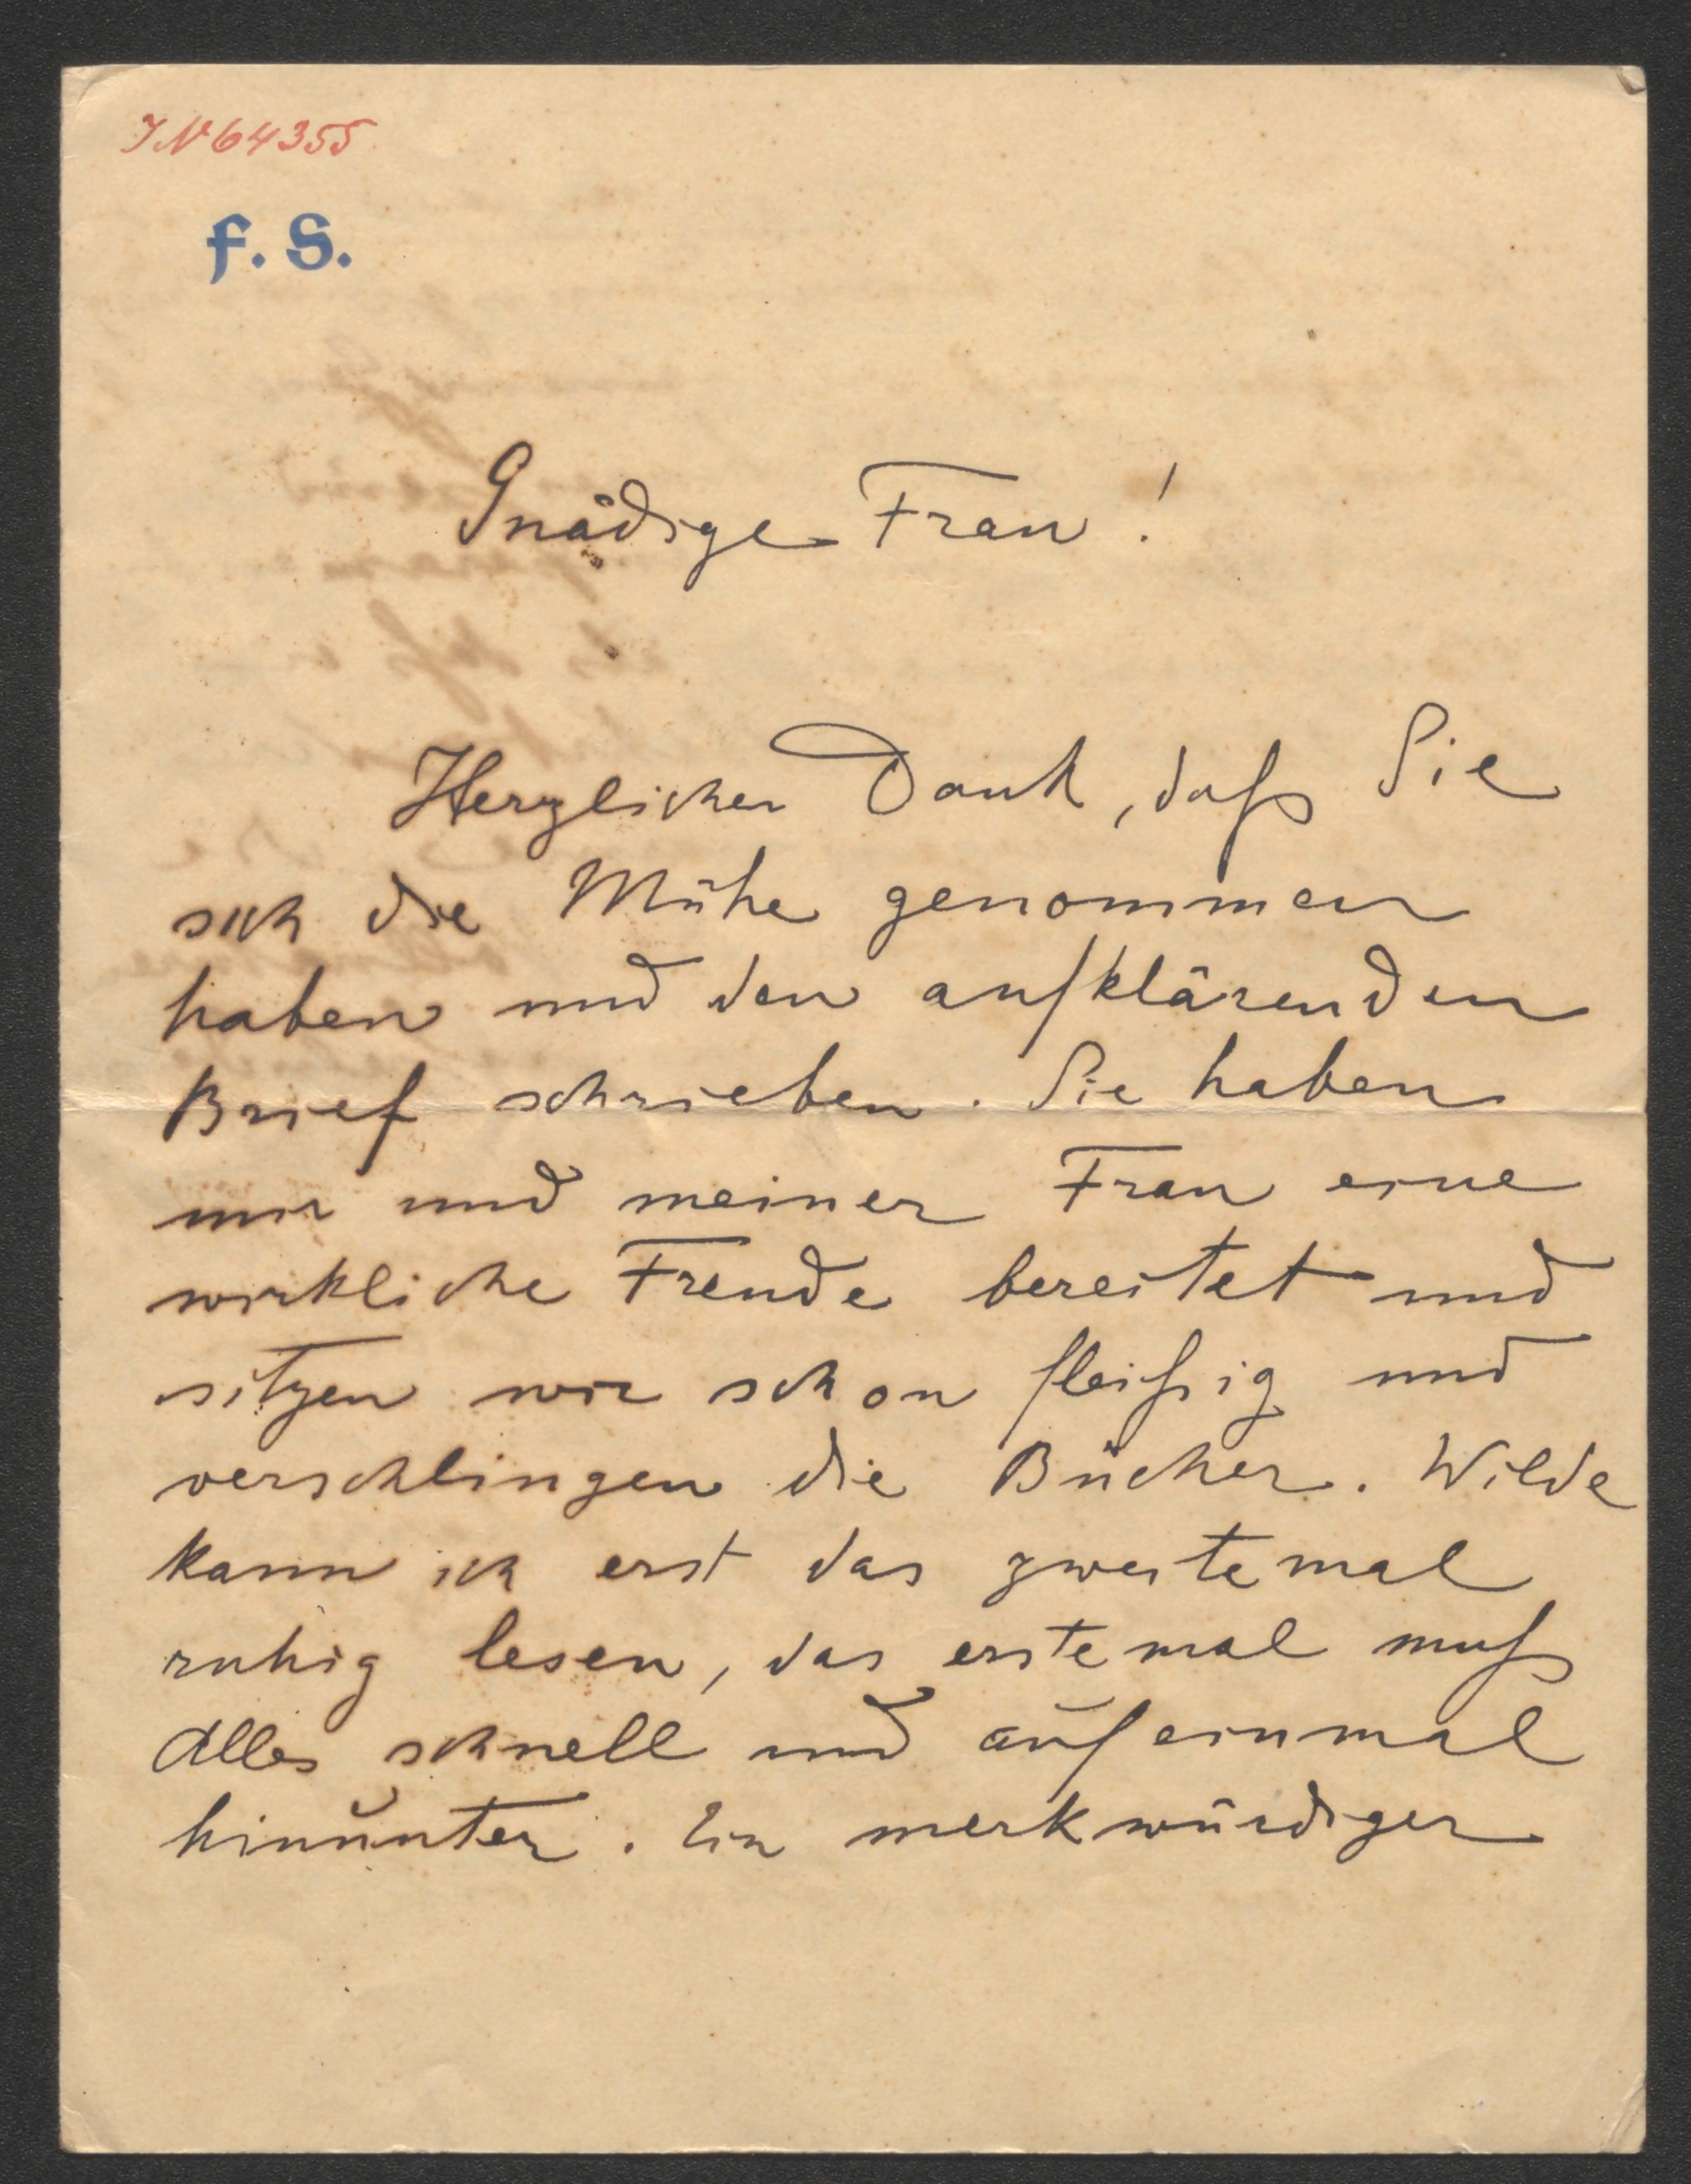 IN 64355
F. S.
Gnädige Frau!
Herzlichen Dank, daß Sie
sich die Mühe genommen
haben und den aufklärenden
Brief schrieben. Sie haben
mir und meiner Frau eine
wirkliche Freude bereitet und
sitzen wir schon fleißig und
verschlingen die Bücher. Wilde
kann ich erst das zweitemal
ruhig lesen, das erstemal muß
alles schnell und auf einmal
hinunter. Ein merkwürdiger